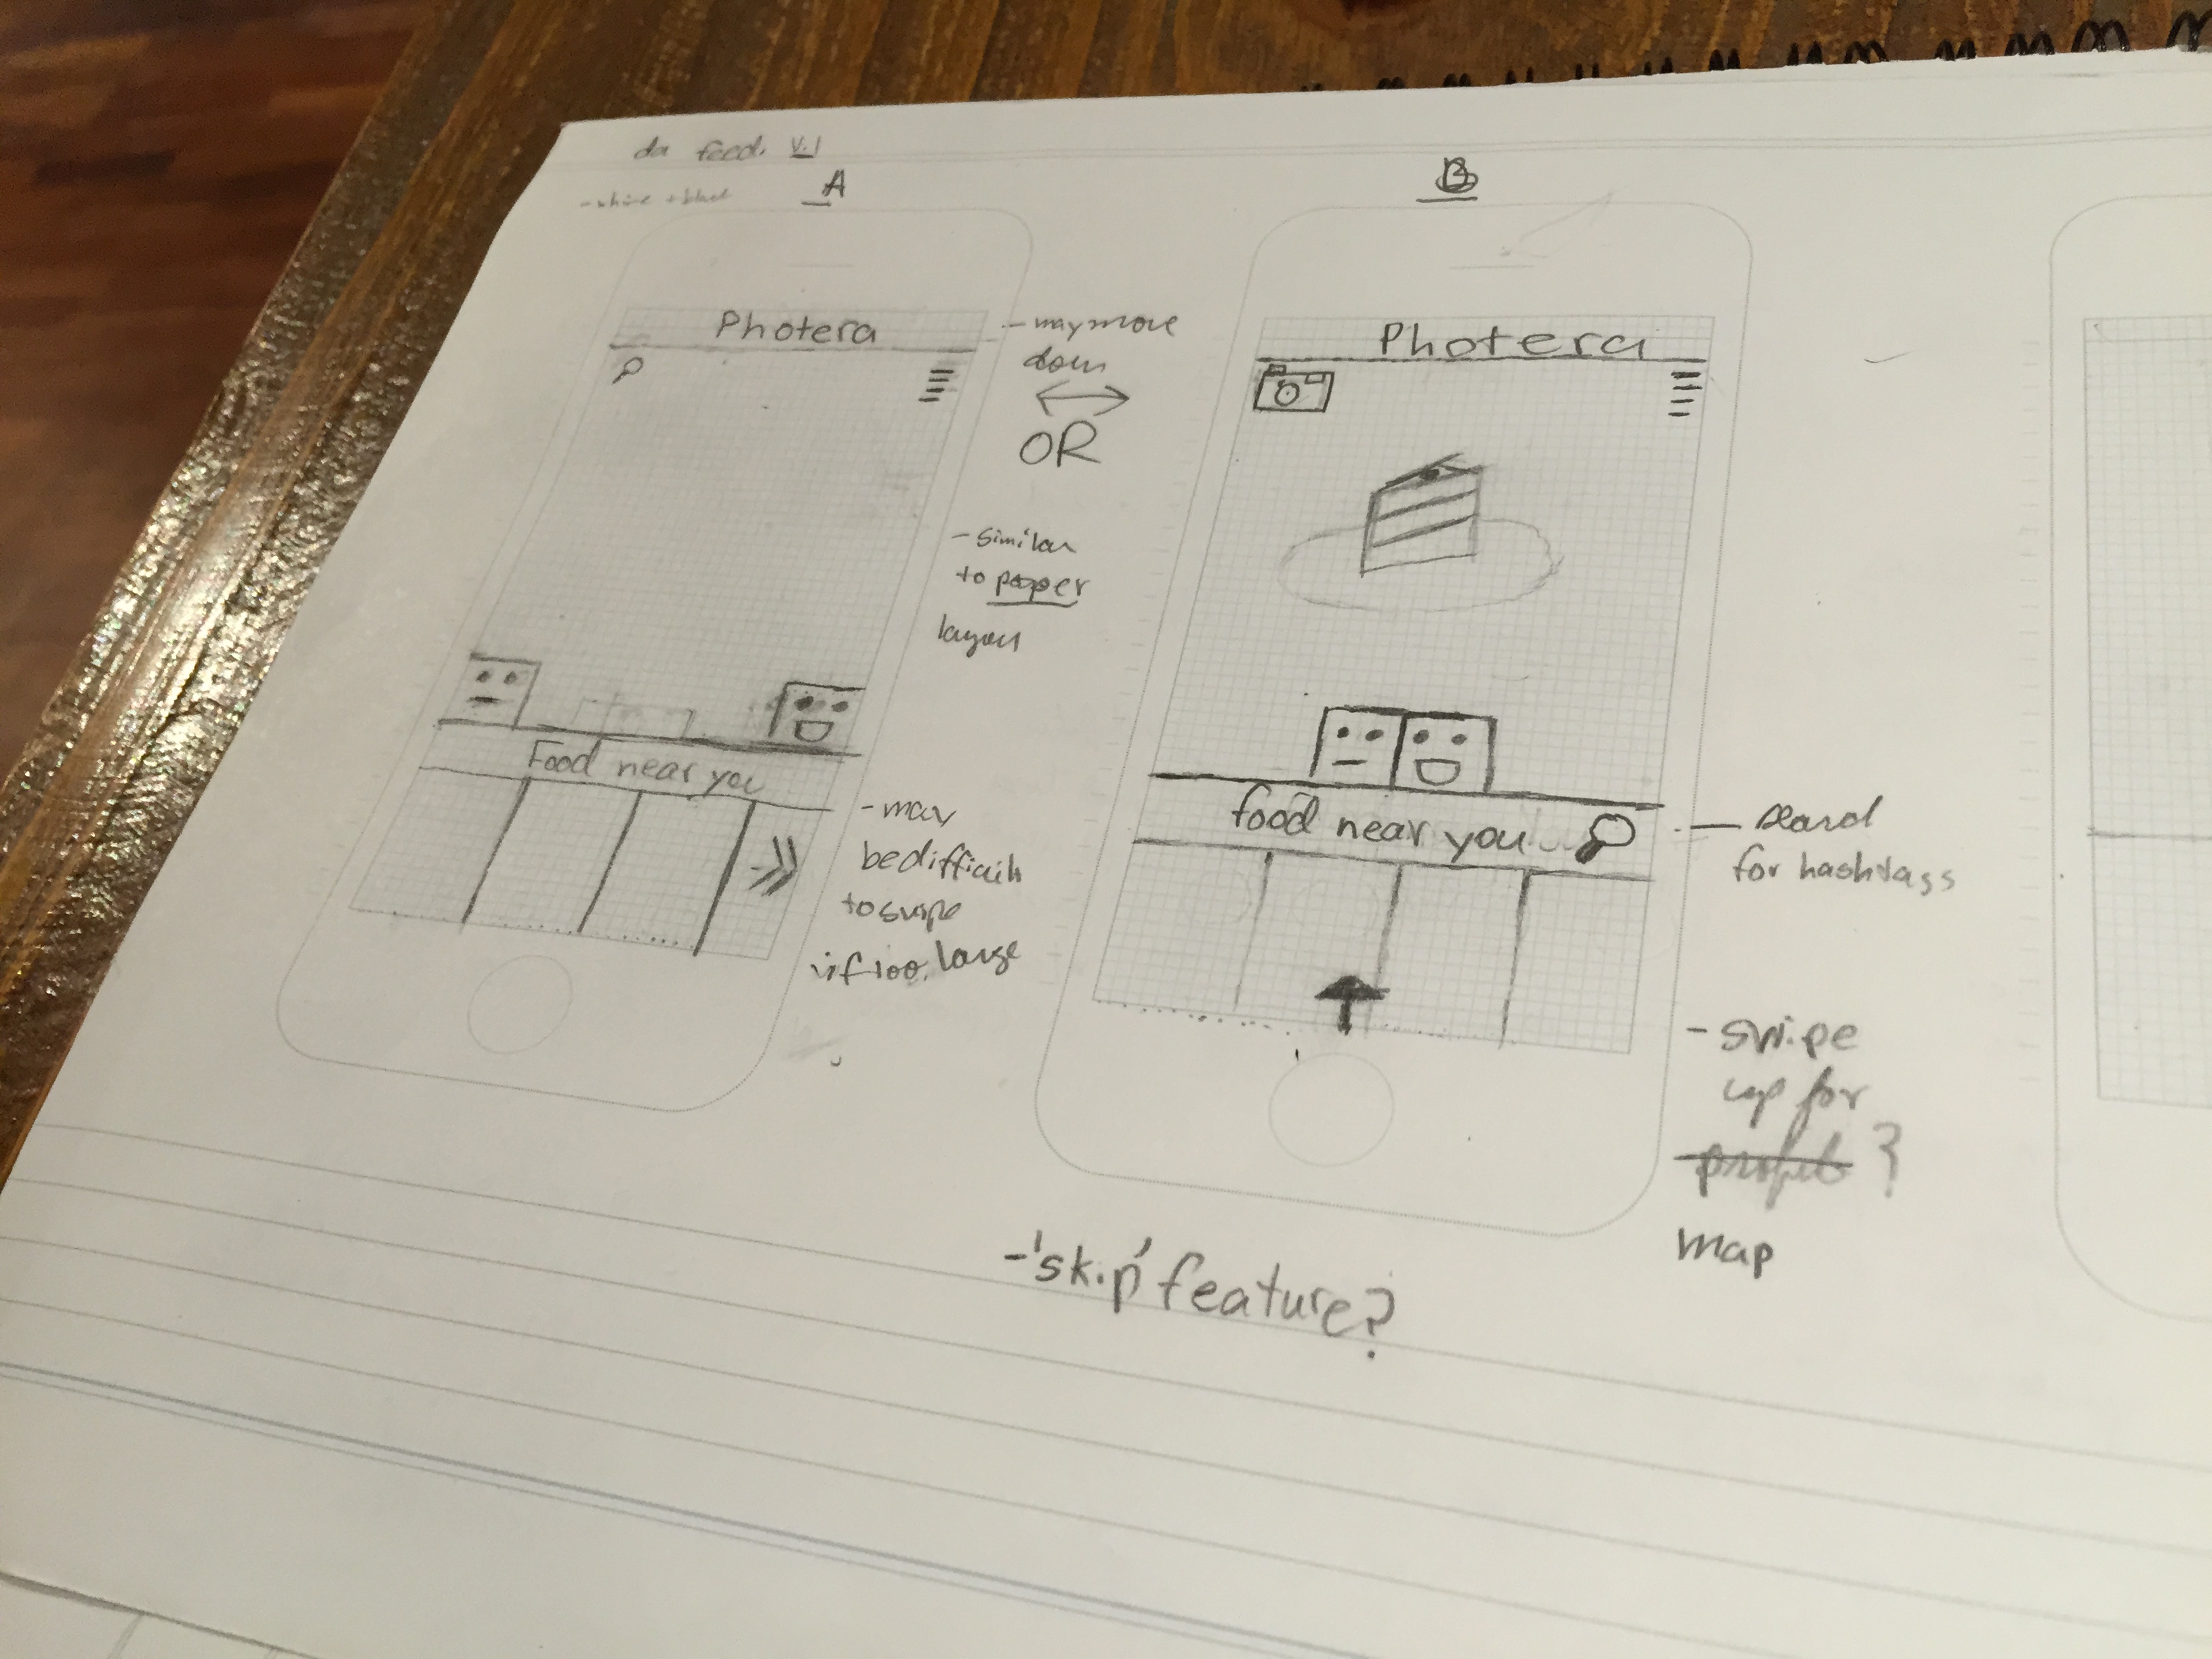 da feed. v.1
- white + black
A
Photera
- may move
down
OR
- similar
to paper
layout
Food near you
- may
be difficult
to swipe
if too large
B
Photera
food near you
- search
for hashtags
- swipe
up for
profile ?
map
- 'skip' feature?